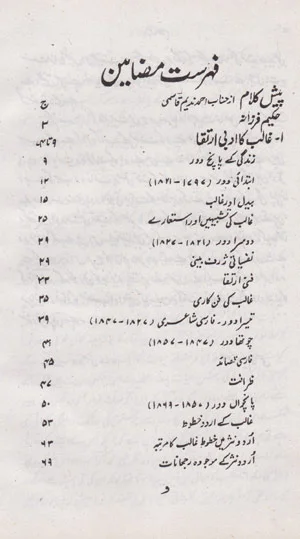 فہرست مضامین
پیش کلام از جناب احمد ندیم قاسمی ج
حکیم فرزانہ ۳
۱- غالب کا ادبی ارتقا
زندگی کے پانچ دور ۹
ابتدائی دور (۱۷۹۷-۱۸۲۱) ۱۲
بیدل اور غالب ۱۵
غالب کی تشبیہیں اور استعارے ۲۵
دوسرا دور (۱۸۲۱-۱۸۲۷) ۲۹
نفسیاتی ژرف بینی ۲۹
فنی ارتقا ۳۳
غالب کی فن کاری ۳۵
تیسرا دور- فارسی شاعری (۱۸۲۷-۱۸۴۷) ۳۹
چوتھا دور (۱۸۴۷-۱۸۵۷) ۴۱
فارسی قصائد ۴۵
ظرافت ۴۷
پانچواں دور (۱۸۵۰-۱۸۶۹) ۵۰
غالب کے اردو خطوط ۵۳
اُردو نثر میں خطوط غالب کا مرتبہ ۶۳
اُردو نثر کے موجودہ رجحانات ۶۹
و